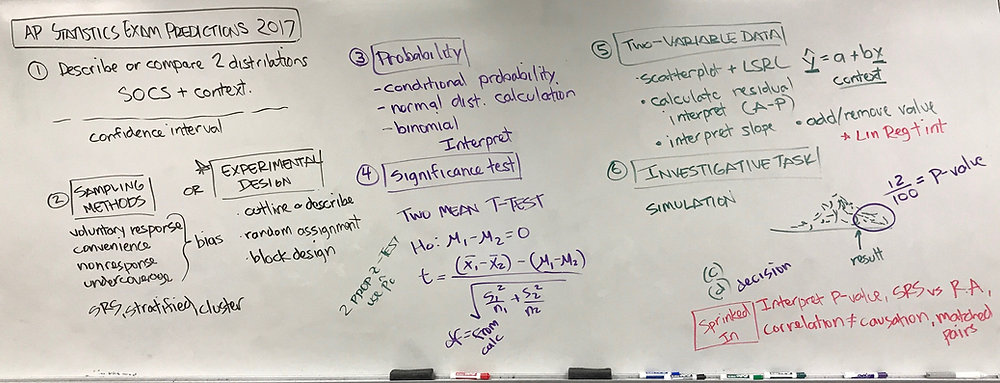 AP STATISTICS EXAM PREDICTIONS 2017
① Describe or compare 2 distribtions
SOCS + context.
confidence interval
② SAMPLING METHODS
voluntary response
convenience
nonresponse
undercoverage
bias
SRS, stratified, cluster
OR
* EXPERIMENTAL DESIGN
· outline or describe
· random assignment
· block design
③ Probability
- conditional probability
- normal dist. calculation
- binomial
Interpret
④ Significance test
TWO MEAN T-TEST
H₀: μ₁-μ₂=0
t = (x̄₁-x̄₂)-(μ₁-μ₂) / √(s₁²/n₁ + s₂²/n₂)
df = from calc
2 PROP Z-TEST
use p̂c
⑤ TWO-VARIABLE DATA
· scatterplot + LSRL
ŷ = a + bx
context
· calculate residual
interpret (A-P)
· interpret slope
· add/remove value
* LinRegtint
⑥ INVESTIGATIVE TASK
SIMULATION
12/100 = P-value
result
(c)
(d) decision
Sprinked In
Interpret P-value, SRS vs R.A,
correlation ≠ causation, matched
pairs